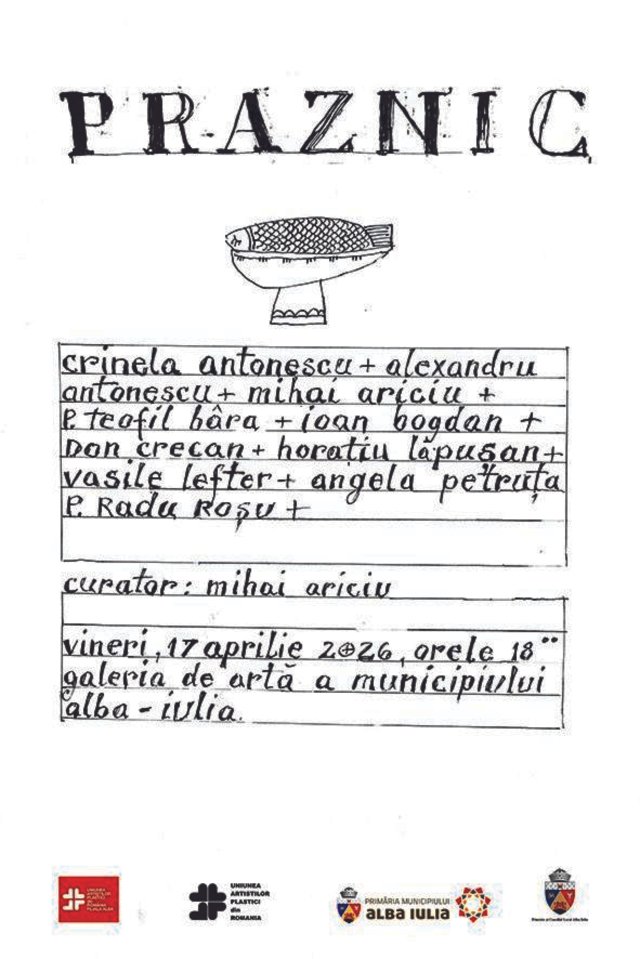 PRAZNIC
crinela antonescu + alexandru
antonescu + mihai ariciu +
P. teofil bâra + ioan bogdan +
Dan crecan + horațiu lăpușan +
vasile lefter + angela petruța
P. Radu Roșu +
curator: mihai ariciu
vineri, 17 aprilie 2026, orele 18ºº
galeria de artă a municipiului
alba-iulia.
UNIUNEA
ARTIȘTILOR
PLASTICI
din
ROMANIA
PRIMĂRIA MUNICIPIULUI
ALBA IULIA